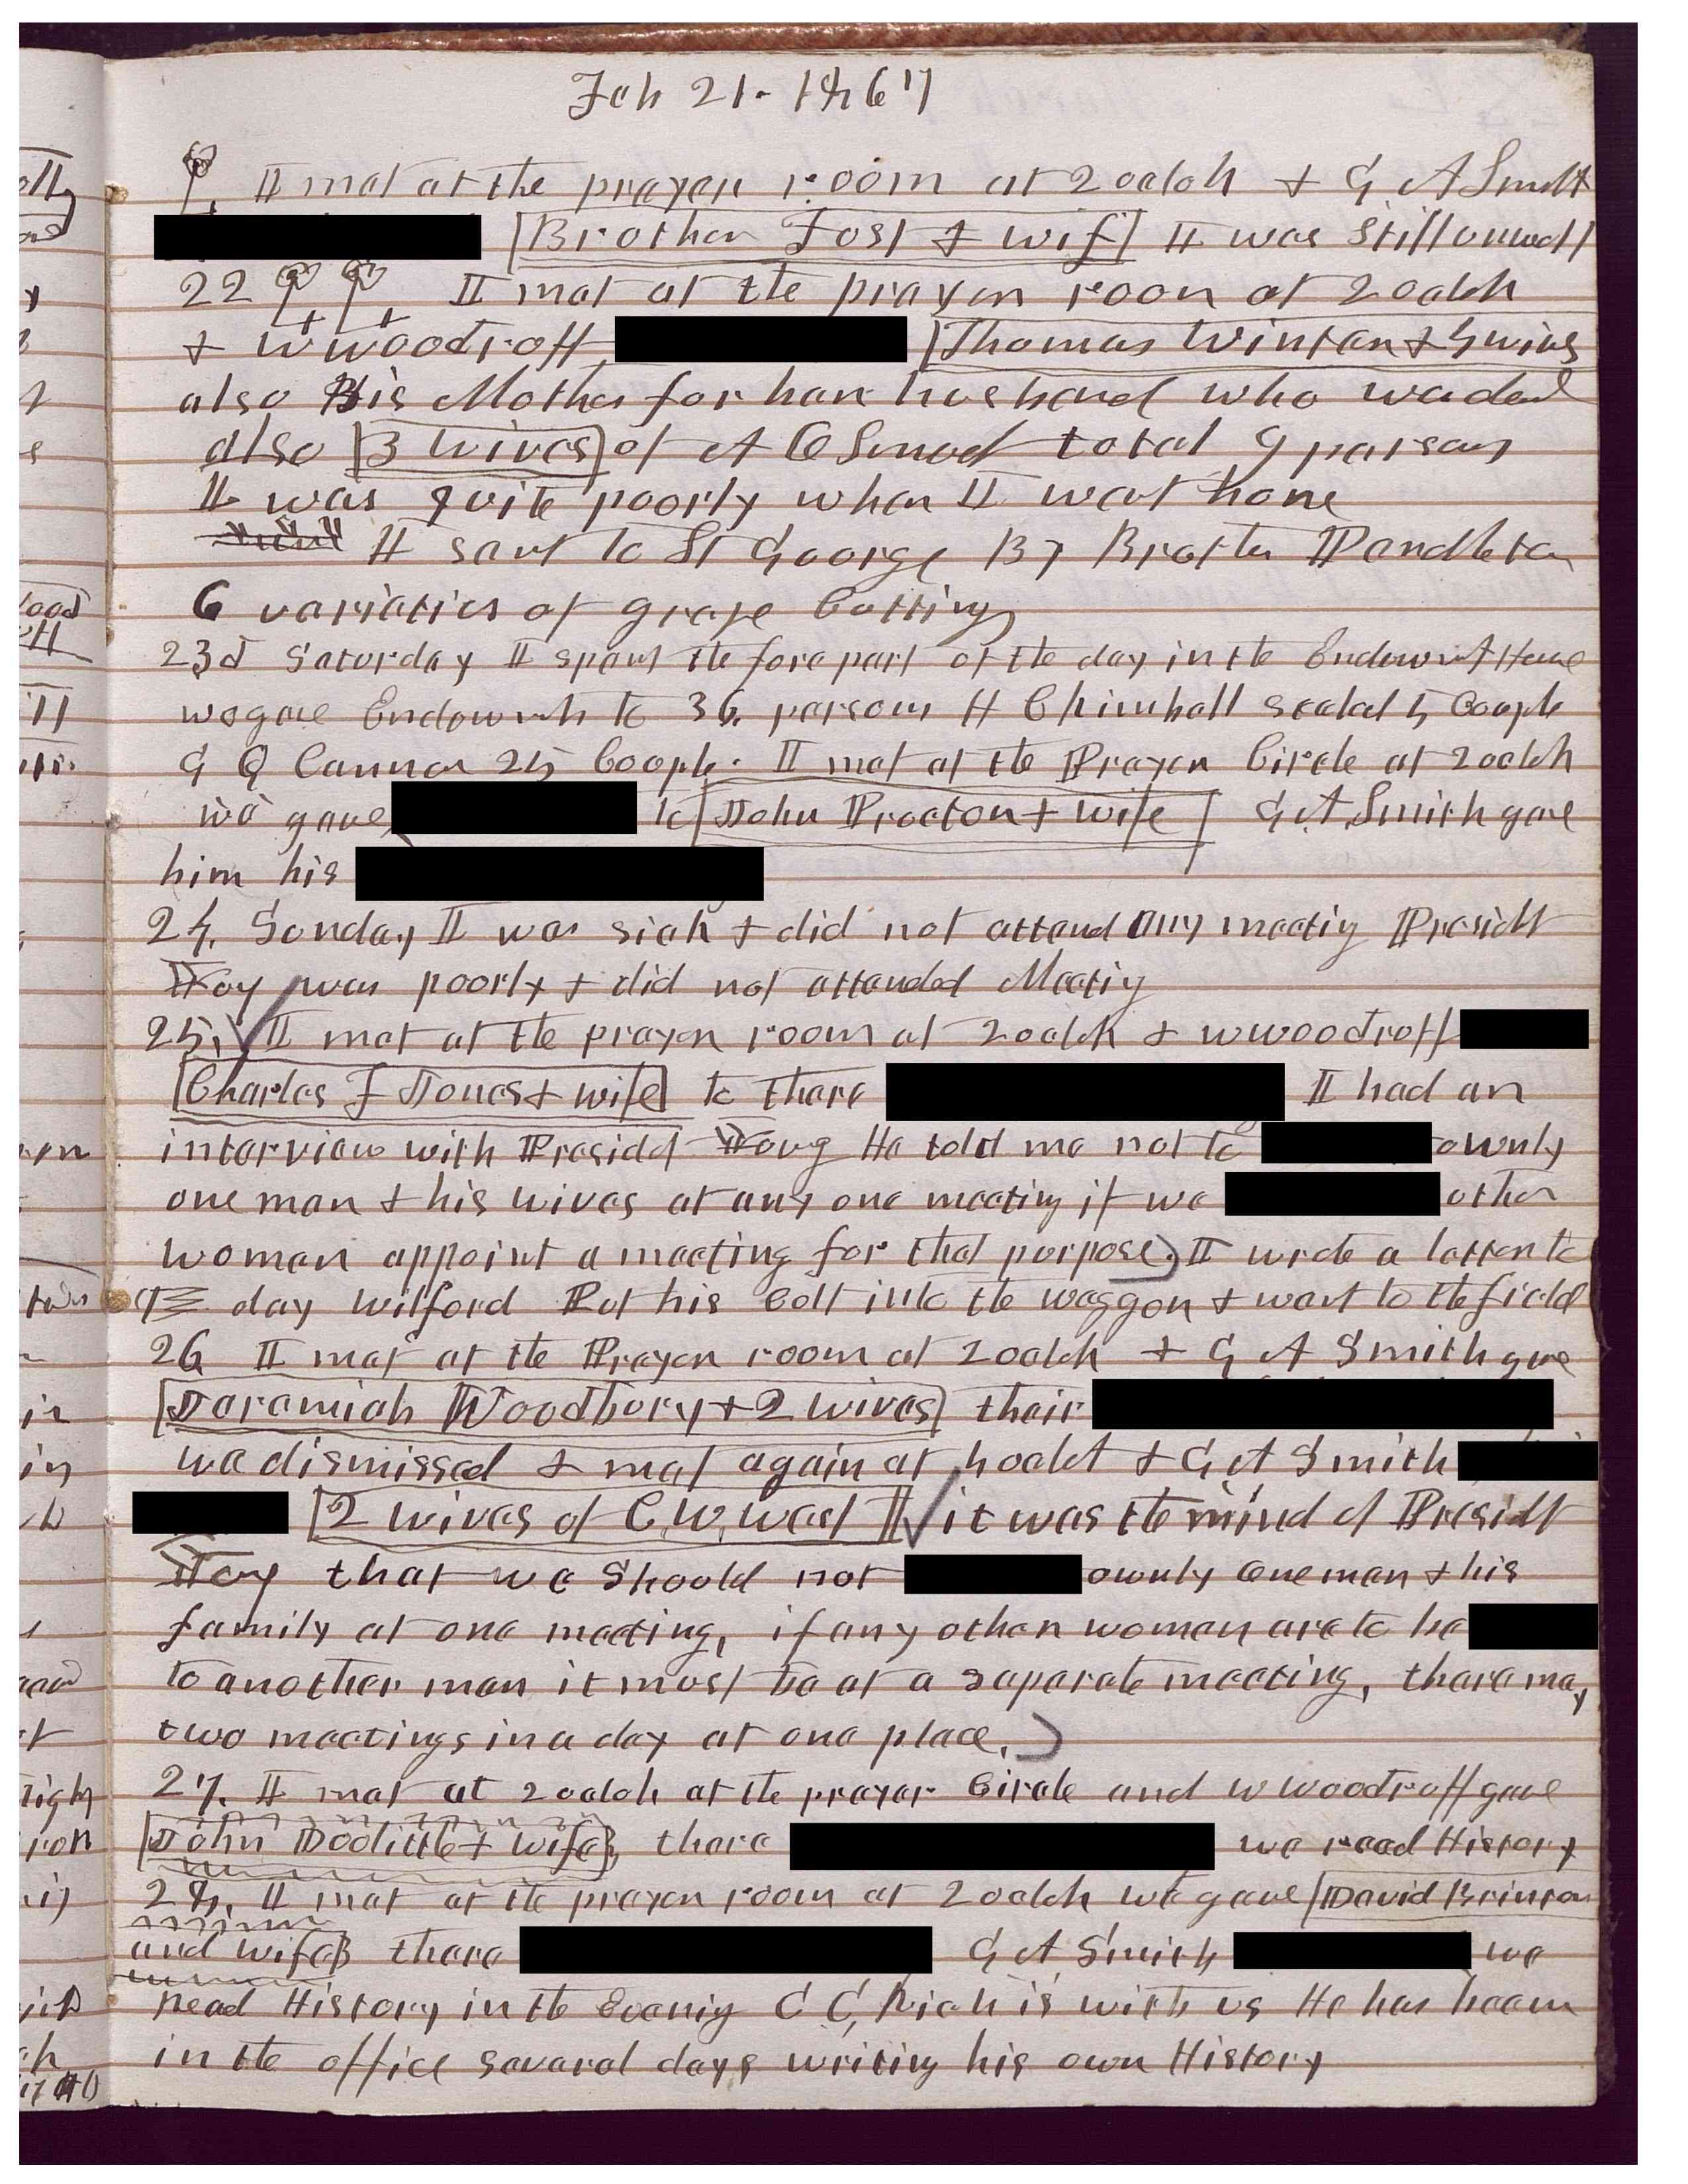 Feb 21. 1867
I met at the prayer room at 2 oclok & G A Smith
Brother Fost & wif I was still unwell
22 I met at the prayer room at 2 oclok
& W Woodroff Thomas Winter & 4 wives
also His Mother for her husband who was dead
also 3 wives of A O Smoot total 9 person
I was quite poorly when I went home
I sent to St George By Brother Pendleton
6 varieties of grape Cutting
23d Saturday I spent the fore part of the day in the Endowmt House
we gave Endowmts to 36 persons H C Kimball sealed 5 Couple
G Q Cannon 25 Coople. I met at the Prayer Circle at 2 oclok
we gave to John Procton & wife G A Smith gave
him his
24. Sunday I was sick & did not attend any meetig Presidt
was poorly & did not attended Meetig
25. I met at the prayer room at 2 oclok & W Woodroff
Charles F Jones & wife to there I had an
interview with Presidt Young He told me not to ownly
one man & his wives at any one meeting if we other
woman appoint a meeting for that purpose) I wrote a letter to
day Wilford Put his Colt into the waggon & went to the field
26 I met at the Prayer room at 2 oclok & G A Smith gave
Jeremiah Woodbury & 2 wives their
we dismissed & met again at 4 oclok & G A Smith
2 wives of C. W. West it was the mind of Presidt
that we Should not ownly one man & his
family at one meeting, if any other woman are to be
to another man it must be at a separate meeting, there may
two meetings in a day at one place.)
27. I met at 2 oclok at the prayer Circle and W Woodroff gave
John Doolittle & wife there we read History
28. I met at the prayer room at 2 oclok we gave David Brinton
and wife there G A Smith we
read History in the Evenig C C, Rich is with us He has been
in the office several days writing his own History